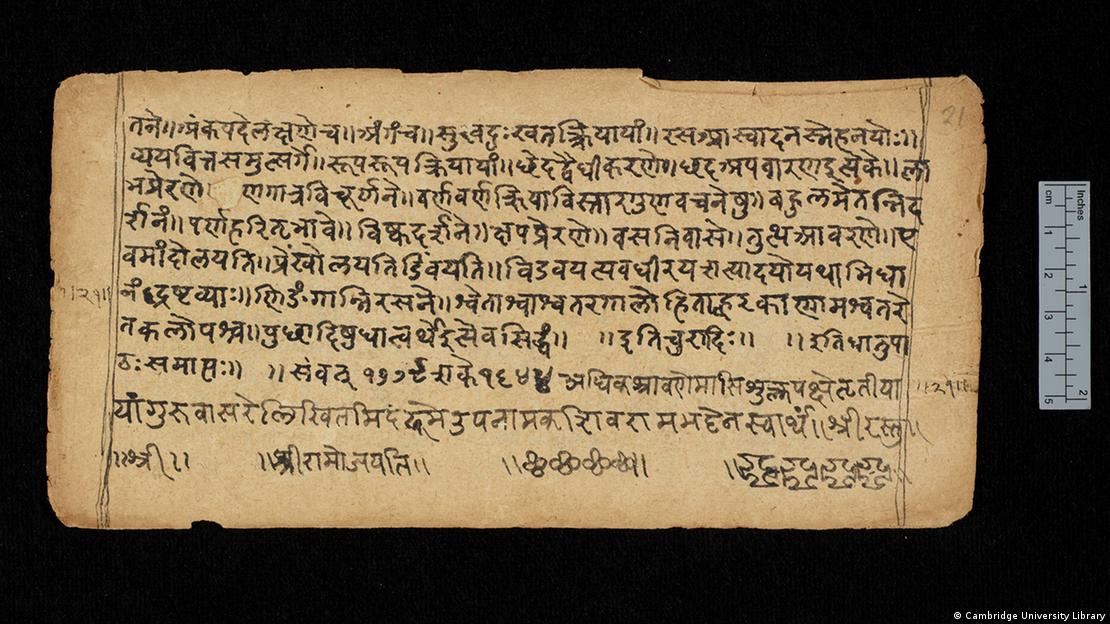 तने॥अंकपदेलक्षणेच॥अंगंच॥सुखदुःखतत्क्रियायां॥रसआस्वादनस्नेहनयोः॥
21
व्ययवित्तसमुत्सर्गे॥रूपरूपक्रियायां॥छेदद्वैधीकरणे॥छदअपवारणइत्येके॥ला
भप्रेरणे॥ व्रणगात्रविचूर्णने॥वर्णवर्णक्रियाविस्तारगुणवचनेषु॥बहुलमेतन्निद
र्शनं॥पर्णहरितभावे॥विष्कदर्शने॥क्षपप्रेरणे॥वसनिवासे॥तुत्थआवरणे॥ए
वमांदोलयति॥प्रेंखोलयतिडिंवयति॥विडवयत्यवधीरयत्यादयोयथाभिधा
॥२१॥
नंद्रष्टव्याः॥णिङंगान्निरसने॥श्वेताश्वाश्वतरगालोडिताह्वरकाणामश्वतरे
तकलोपश्च॥पुच्छादिषुधात्वर्थेइत्येवसिद्धं॥ ॥इतिचुरादिः॥ ॥इतिधातुपा
ठःसमाप्तः॥ ॥संवत् १७७९ शके१६४४ अधिकश्रावणेमासिशुक्लपक्षेतृतीया
॥२१॥
यांगुरुवासरेलिखितमिदं शिवरामभट्टेनस्वार्थं॥श्रीरस्तु॥
॥श्री॥ ॥श्रीरामोजयति॥
inches
cm
1
2
3
4
5
1
2
© Cambridge University Library